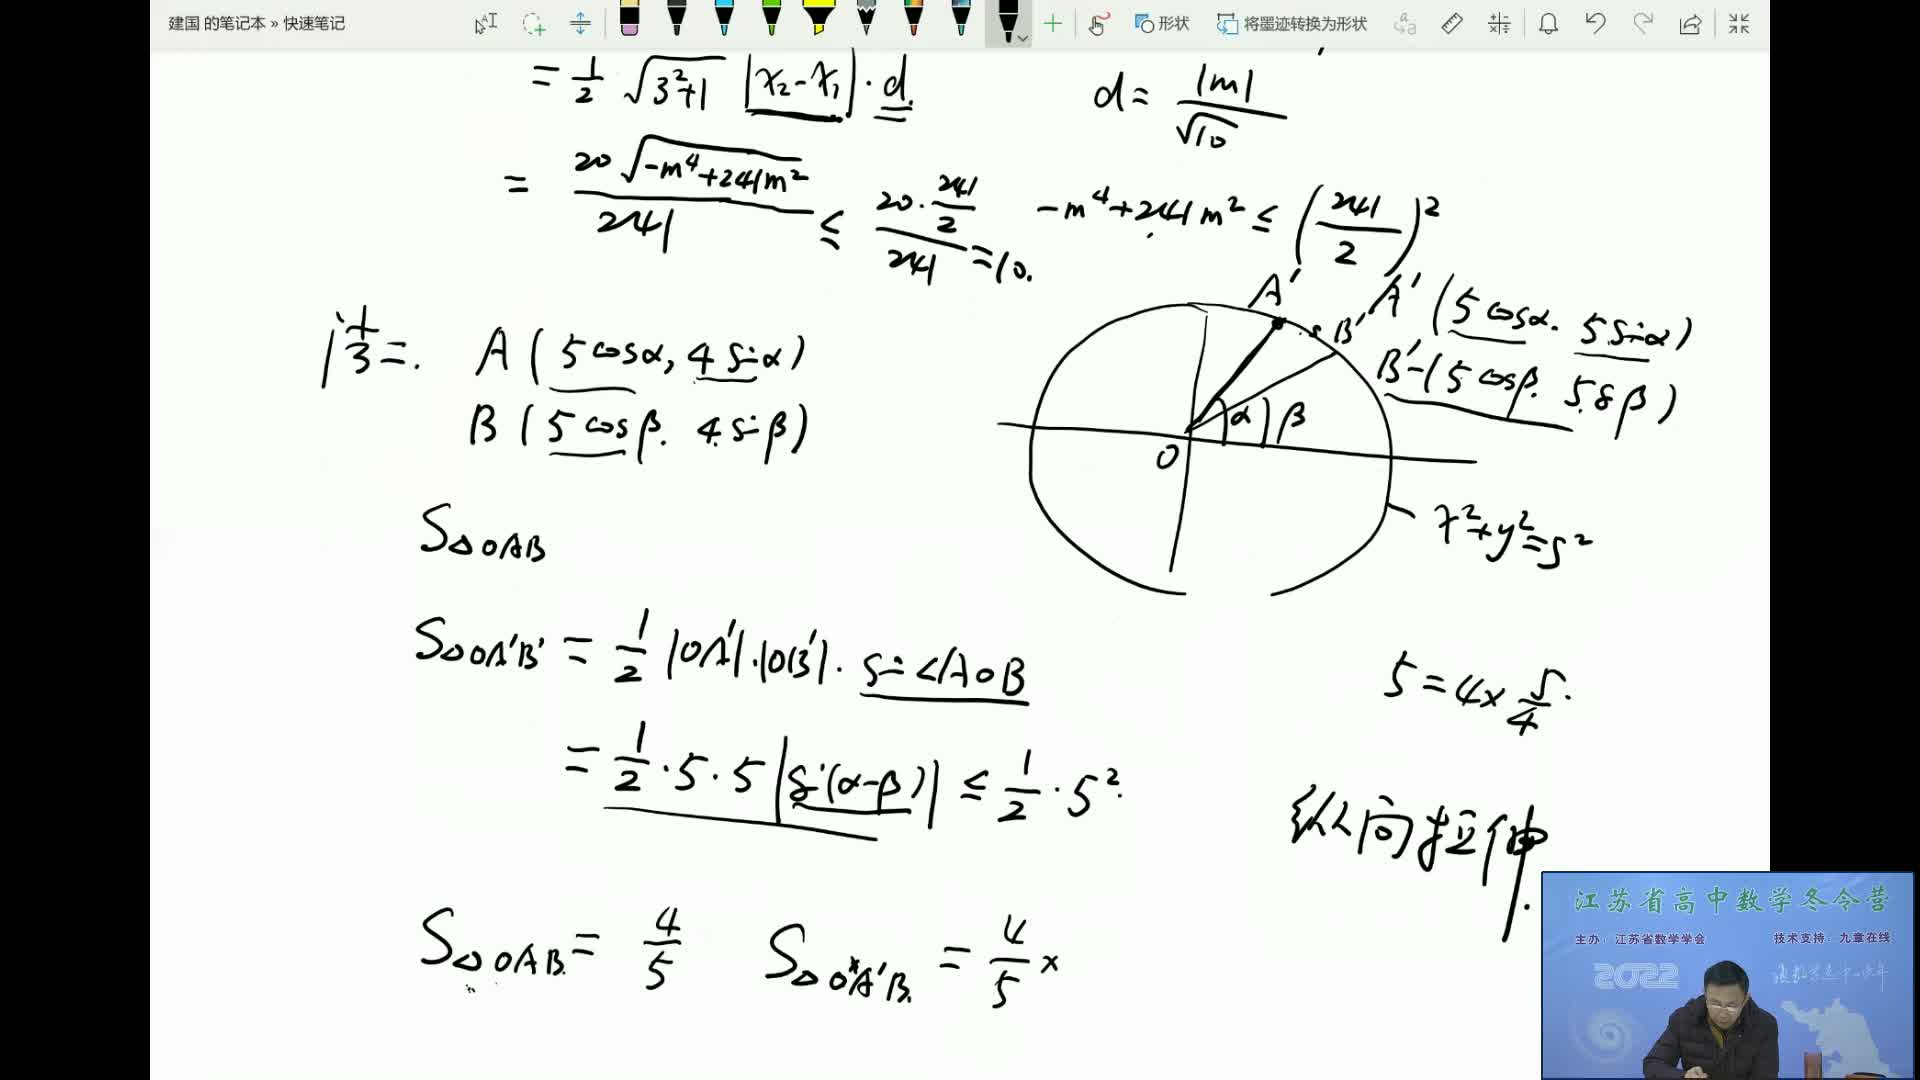 建国 的笔记本 » 快速笔记
形状 将墨迹转换为形状
= 1/2 √(3²+1) |x₂-x₁| · d.
d = |m|/√10
= 20√(-m⁴+241m²)/241 ≤ (20·241/2)/241 = 10.
-m⁴+241m² ≤ (241/2)²
A(5cosα, 4sinα)
B(5cosβ. 4sinβ)
A'
B'
A'(5cosα. 5sinα)
B'(5cosβ. 5sβ)
α
β
O
x²+y²=5²
S△OAB
S△OA'B' = 1/2 |OA'|·|OB'|· sin∠AOB
5=4×5/4.
= 1/2 ·5·5 |sin(α-β)| ≤ 1/2 ·5².
纵向拉伸.
S△OAB = 4/5 S△OA'B' = 4/5 ×
江苏省高中数学冬令营
主办：江苏省数学学会 技术支持：九章在线
2022